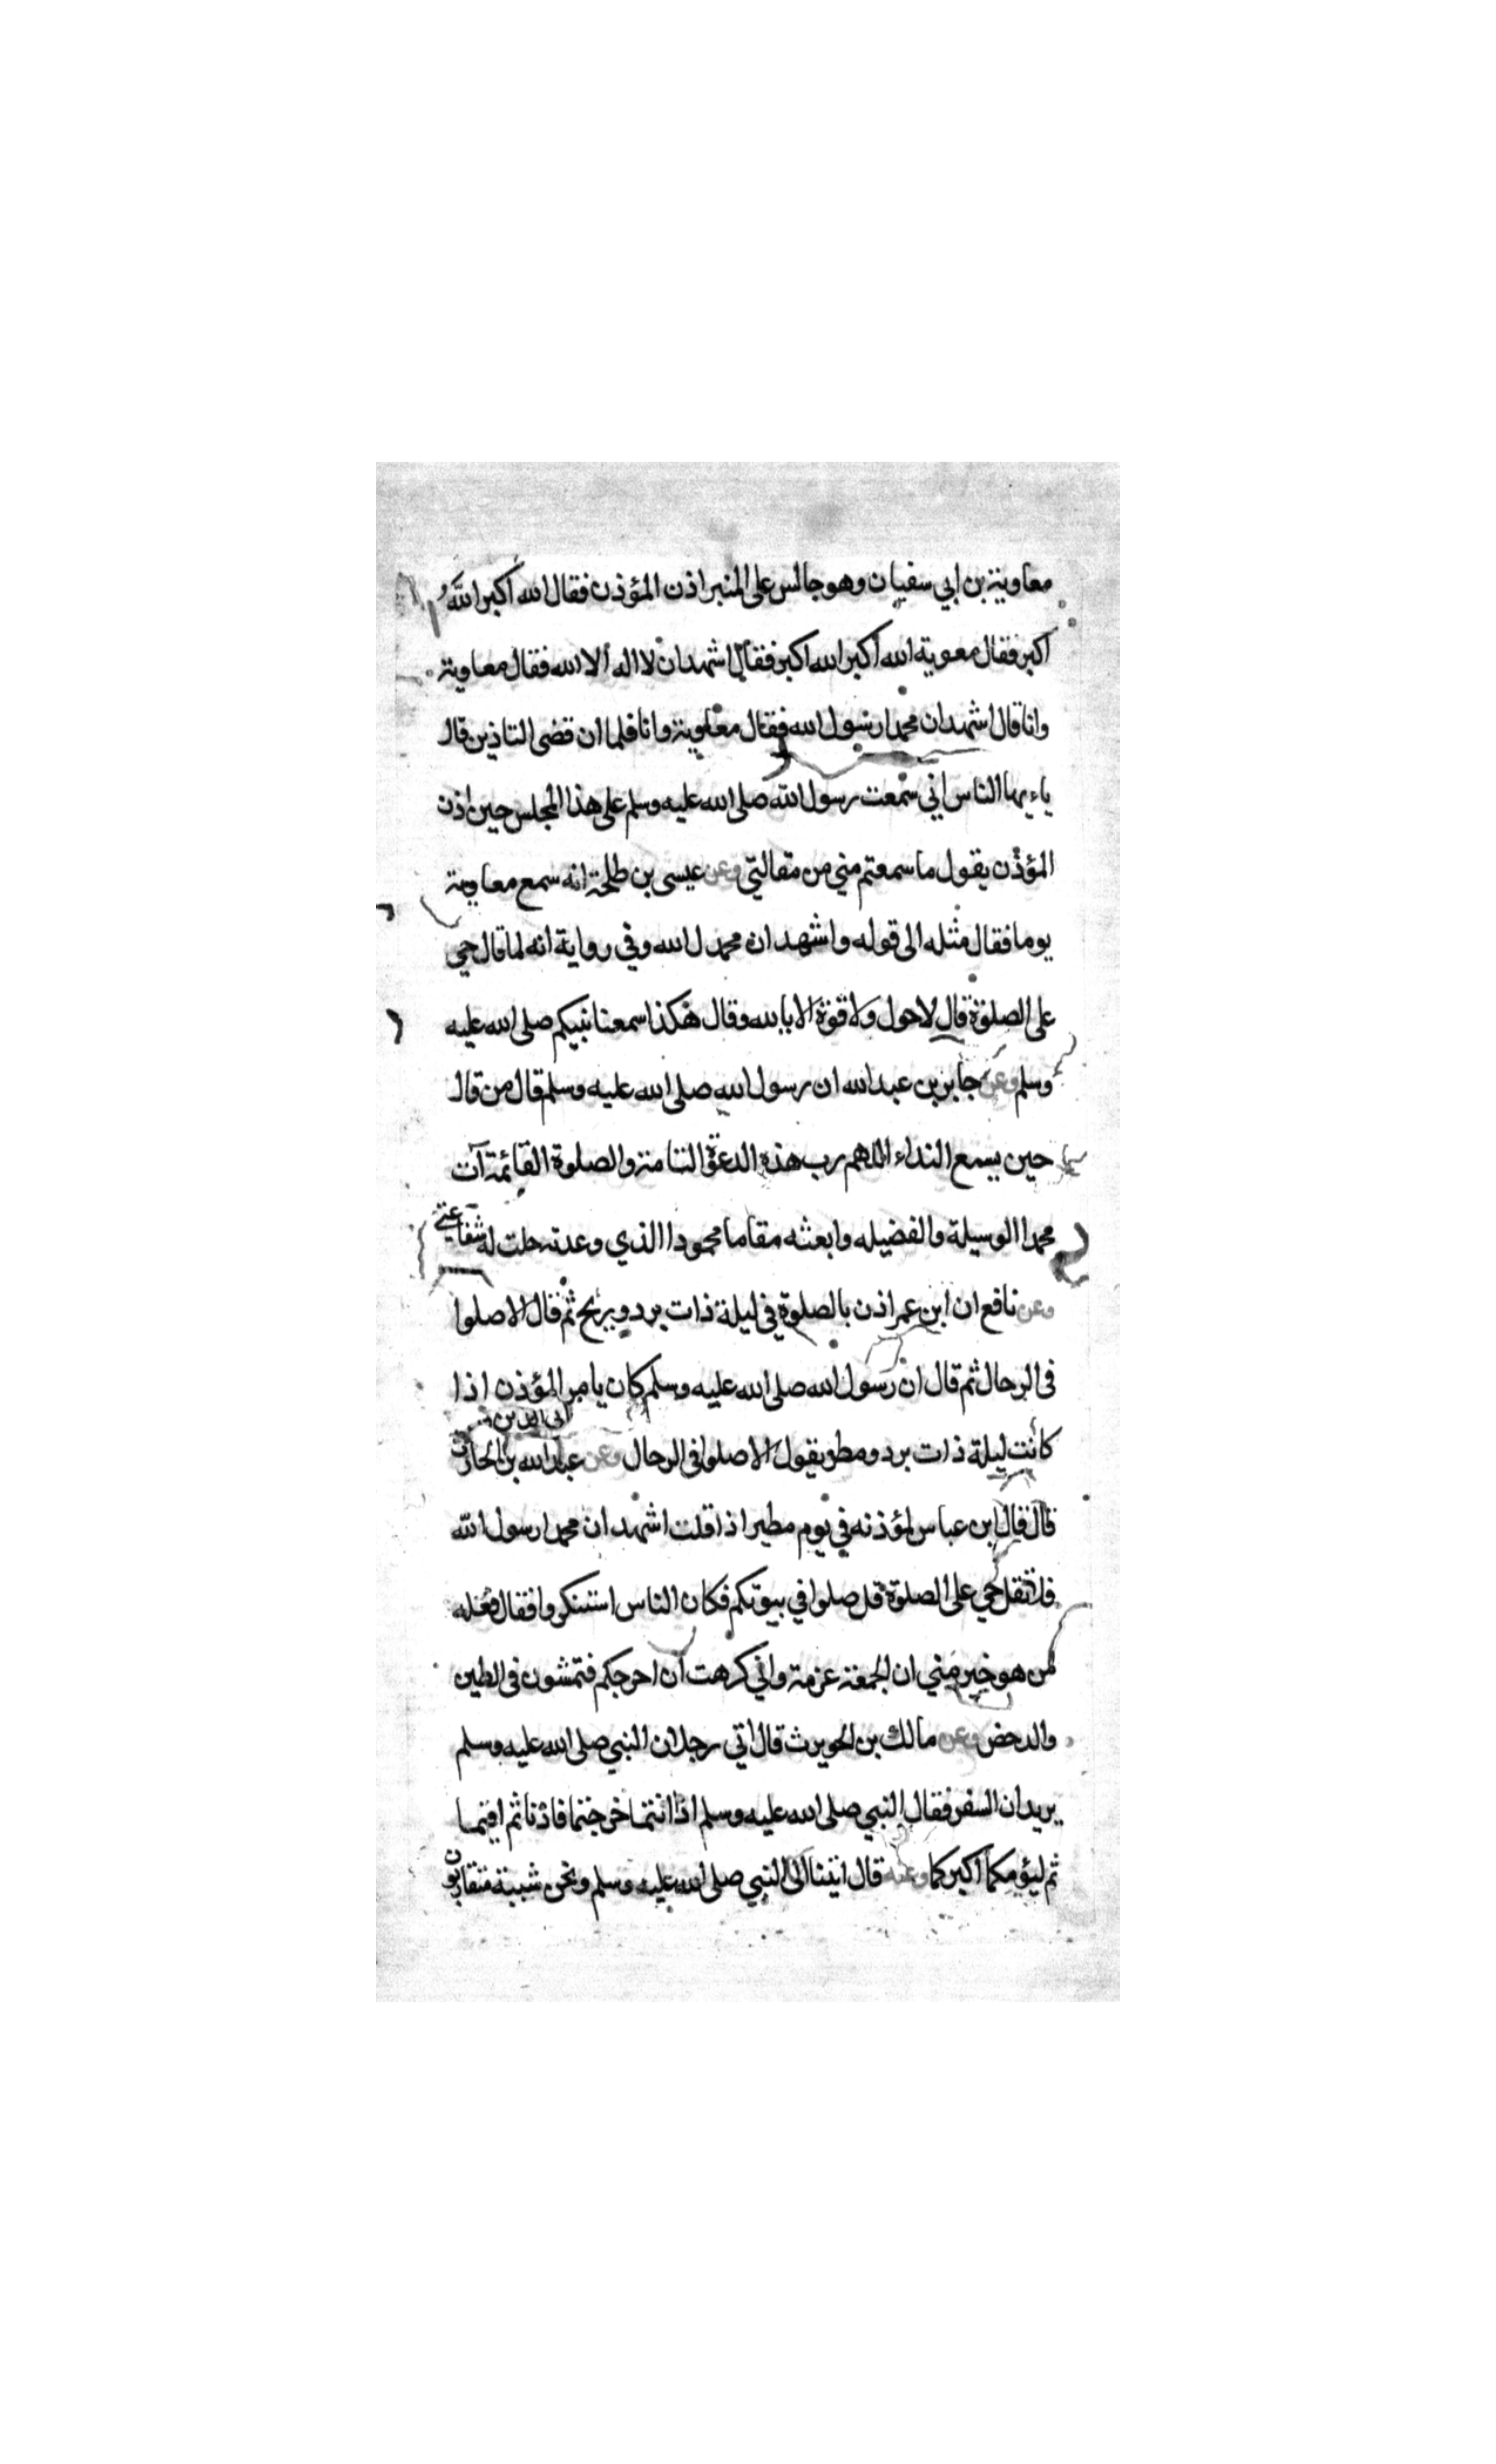 معاوية بن ابي سفيان وهو جالس على المنبر اذن المؤذن فقال الله اكبر اللهُ
اكبر فقال معوية الله اكبر الله اكبر فقال اشهد ان لا اله الا الله فقال معاوية
وانا قال اشهد ان محمدا رسول الله فقال معاوية وانا فلما ان قضى التاذين قال
ياءيها الناس اني سمعت رسول الله صلى الله عليه وسلم على هذا المجلس حين اذن
المؤذن يقول ما سمعتم مني من مقالتي وعن عيسى بن طلحة انه سمع معاوية
يوما فقال مثله الى قوله واشهد ان محمد ل الله وفي رواية انه لما قال حي
على الصلوة قال لا حول ولا قوة الا بالله وقال هكذا سمعنا نبيكم صلى الله عليه
وسلم وعن جابر بن عبد الله ان رسول الله صلى الله عليه وسلم قال من قال
حين يسمع النداء اللهم رب هذه الدعوة التامة والصلوة القائمة آت
محمدا الوسيلة والفضيله وابعثه مقاما محمودا الذي وعدته حلت له شفاعتي
وعن نافع ان ابن عمر اذن بالصلوة في ليلة ذات برد وريح ثم قال الا صلوا
في الرحال ثم قال ان رسول الله صلى الله عليه وسلم كان يامر المؤذن اذا
كانت ليلة ذات برد ومطر يقول الا صلوا في الرحال وعن عبد الله بن الحارث
قال قال ابن عباس لمؤذنه في يوم مطير اذا قلت اشهد ان محمدا رسول الله
فلا تقل حي على الصلوة قل صلوا في بيوتكم فكان الناس استنكروا فقال فعله
من هو خير مني ان الجمعة عزمة واني كرهت ان احرجكم فتمشون في الطين
والدحض وعن مالك بن الحويرث قال اتى رجلان النبي صلى الله عليه وسلم
يريدان السفر فقال النبي صلى الله عليه وسلم اذا انتما خرجتما فاذنا ثم اقيما
ثم ليؤمكما اكبركما وعنه قال اتينا الى النبي صلى الله عليه وسلم ونحن شببة متقاربون